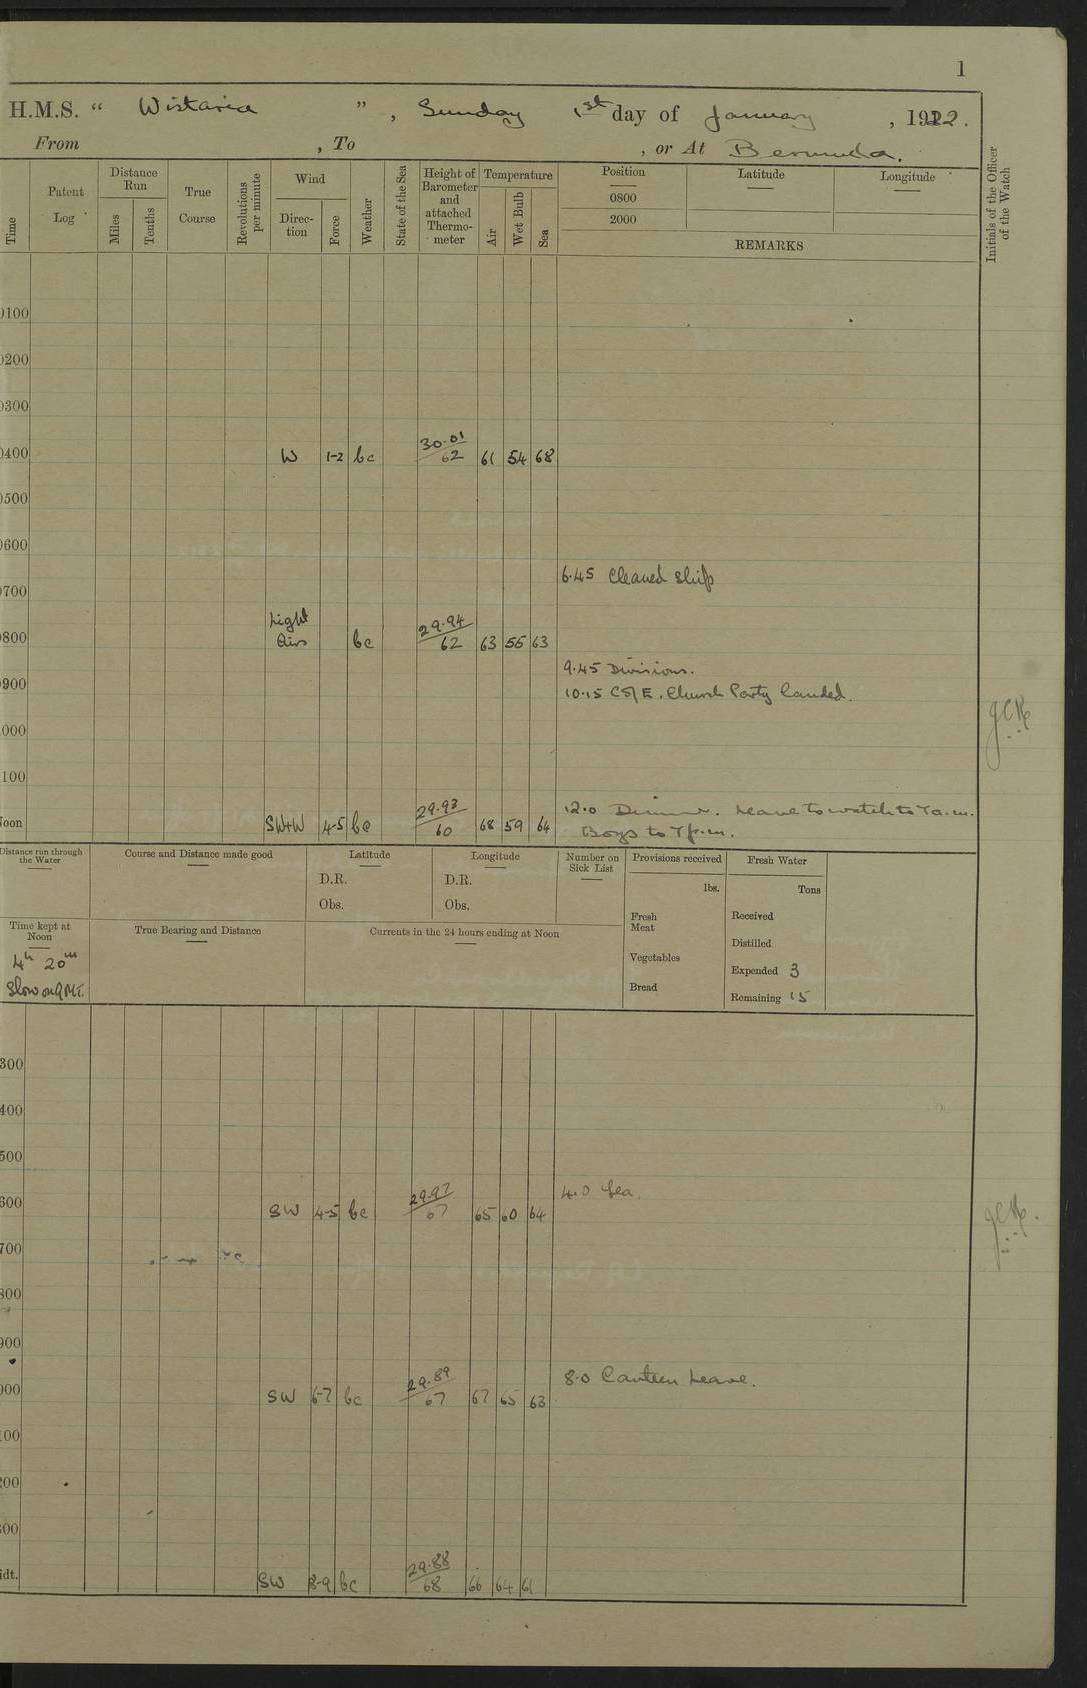 1
H.M.S. “ Wistaria ” , Sunday 1st day of January , 1922.
From , To , or At Bermuda.
Time
Patent Log
Distance Run
Miles
Tenths
True Course
Revolutions per minute
Wind
Direc-tion
Force
Weather
State of the Sea
Height of Barometer and attached Thermo-meter
Temperature
Air
Wet Bulb
Sea
Position
0800
2000
Latitude
Longitude
REMARKS
Initials of the Officer of the Watch
0100
0200
0300
0400 W 1-2 bc 30.01/62 61 54 68
0500
0600
6.45 Cleaned Ship
0700
0800 Light Airs bc 29.94/62 63 55 63
9.45 Divisions.
0900
10.15 C of E. Church Party landed.
000
100
12.0 Dinner. Leave to watch to 7 a.m.
Noon SW+W 4-5 bc 29.93/60 68 59 64
Boys to 7 p.m.
Distance run through the Water
Course and Distance made good
Latitude
D.R.
Obs.
Longitude
D.R.
Obs.
Number on Sick List
Provisions received
lbs.
Fresh Meat
Vegetables
Bread
Fresh Water
Tons
Received
Distilled
Expended 3
Remaining 15
Time kept at Noon
4h 20m
Slow on GMT.
True Bearing and Distance
Currents in the 24 hours ending at Noon
300
400
500
4.0 Tea.
600 SW 4-5 bc 29.97/67 65 60 64
700
800
900
8.0 Canteen Leave.
000 SW 6-7 bc 29.89/67 67 65 63
100
200
300
idt. SW 8-9 bc 29.88/68 66 64 61